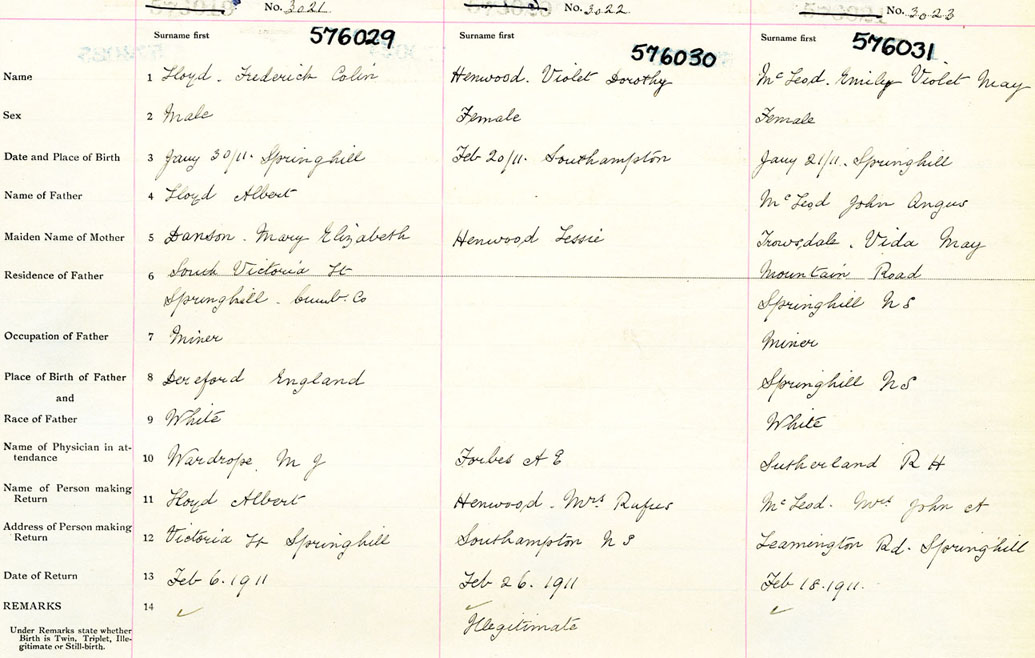 No. 3021 No. 3022 No. 3023
Surname first 576029 Surname first 576030 Surname first 576031
Name 1 Lloyd. Frederick Colin Henwood. Violet Dorothy McLeod. Emily Violet May
Sex 2 Male Female Female
Date and Place of Birth 3 Jany 30/11. Springhill Feb 20/11. Southampton Jany 21/11. Springhill
Name of Father 4 Lloyd Albert McLeod John Angus
Maiden Name of Mother 5 Danson. Mary Elizabeth Henwood Jessie Trowsdale. Vida May
Residence of Father 6 South Victoria St Mountain Road
Springhill. Cumb. Co Springhill N S
Occupation of Father 7 Miner Miner
Place of Birth of Father 8 Dereford England Springhill N S
and
Race of Father 9 White White
Name of Physician in at-
tendance 10 Wardrope, M J Forbes A E Sutherland R H
Name of Person making
Return 11 Lloyd Albert Henwood. Mrs Rufus McLeod. Mrs John A
Address of Person making
Return 12 Victoria St Springhill Southampton N S Leamington Rd. Springhill
Date of Return 13 Feb 6. 1911 Feb 26. 1911 Feb 18. 1911.
REMARKS 14
Illegitimate
Under Remarks state whether
Birth is Twin, Triplet, Ille-
gitimate or Still-birth.